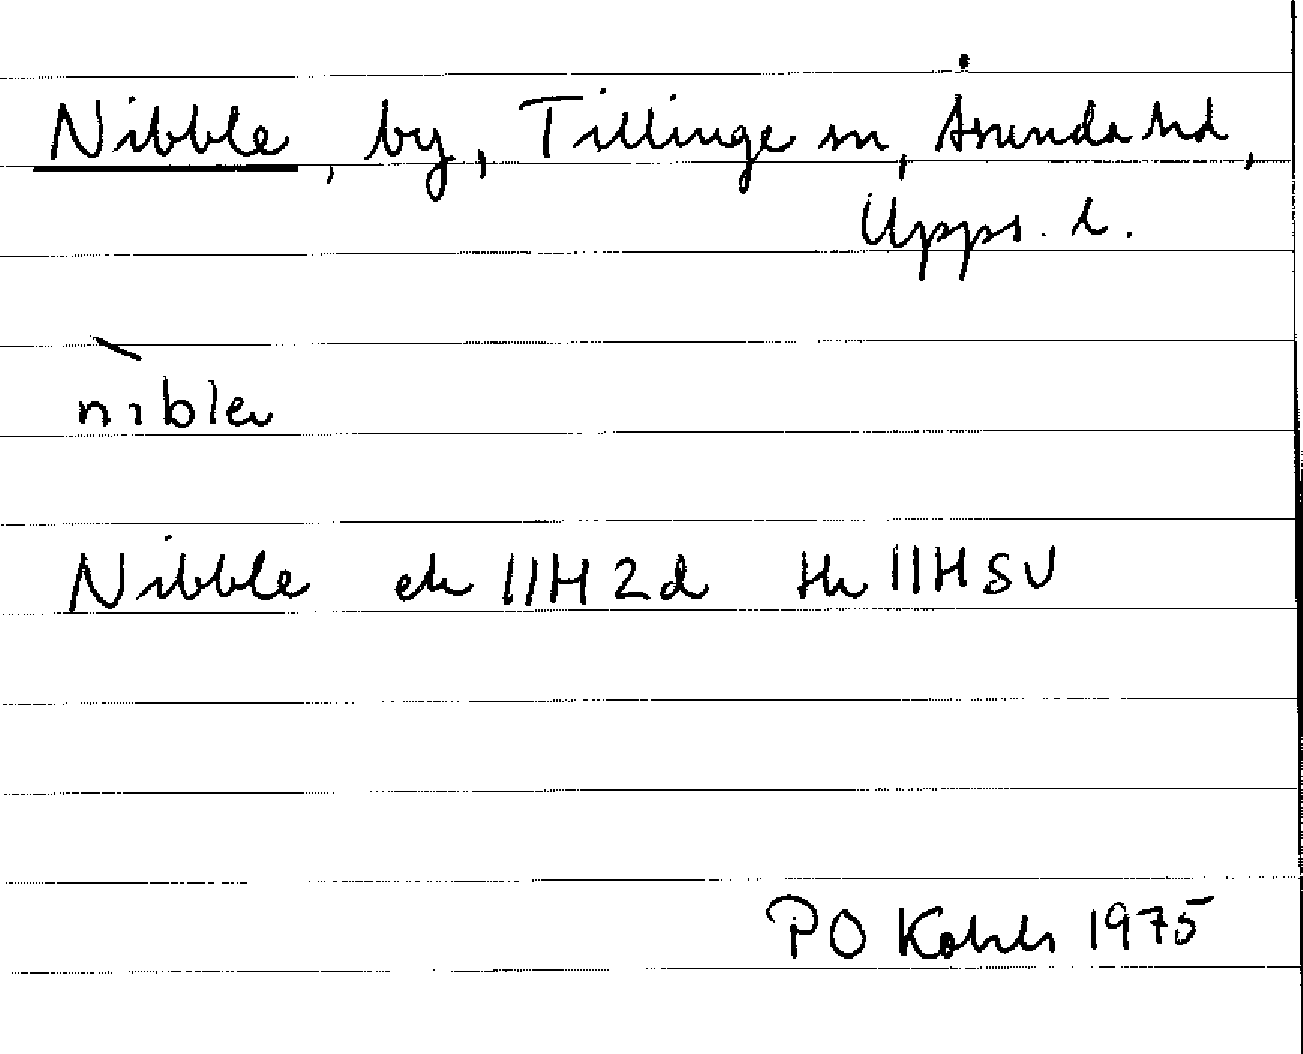 Nibble, by, Tillinge sn, Åsunda hd,
Upps. l.
nìblɐ
Nibble ek 11H 2d tk 11H SV
PO Kohls 1975